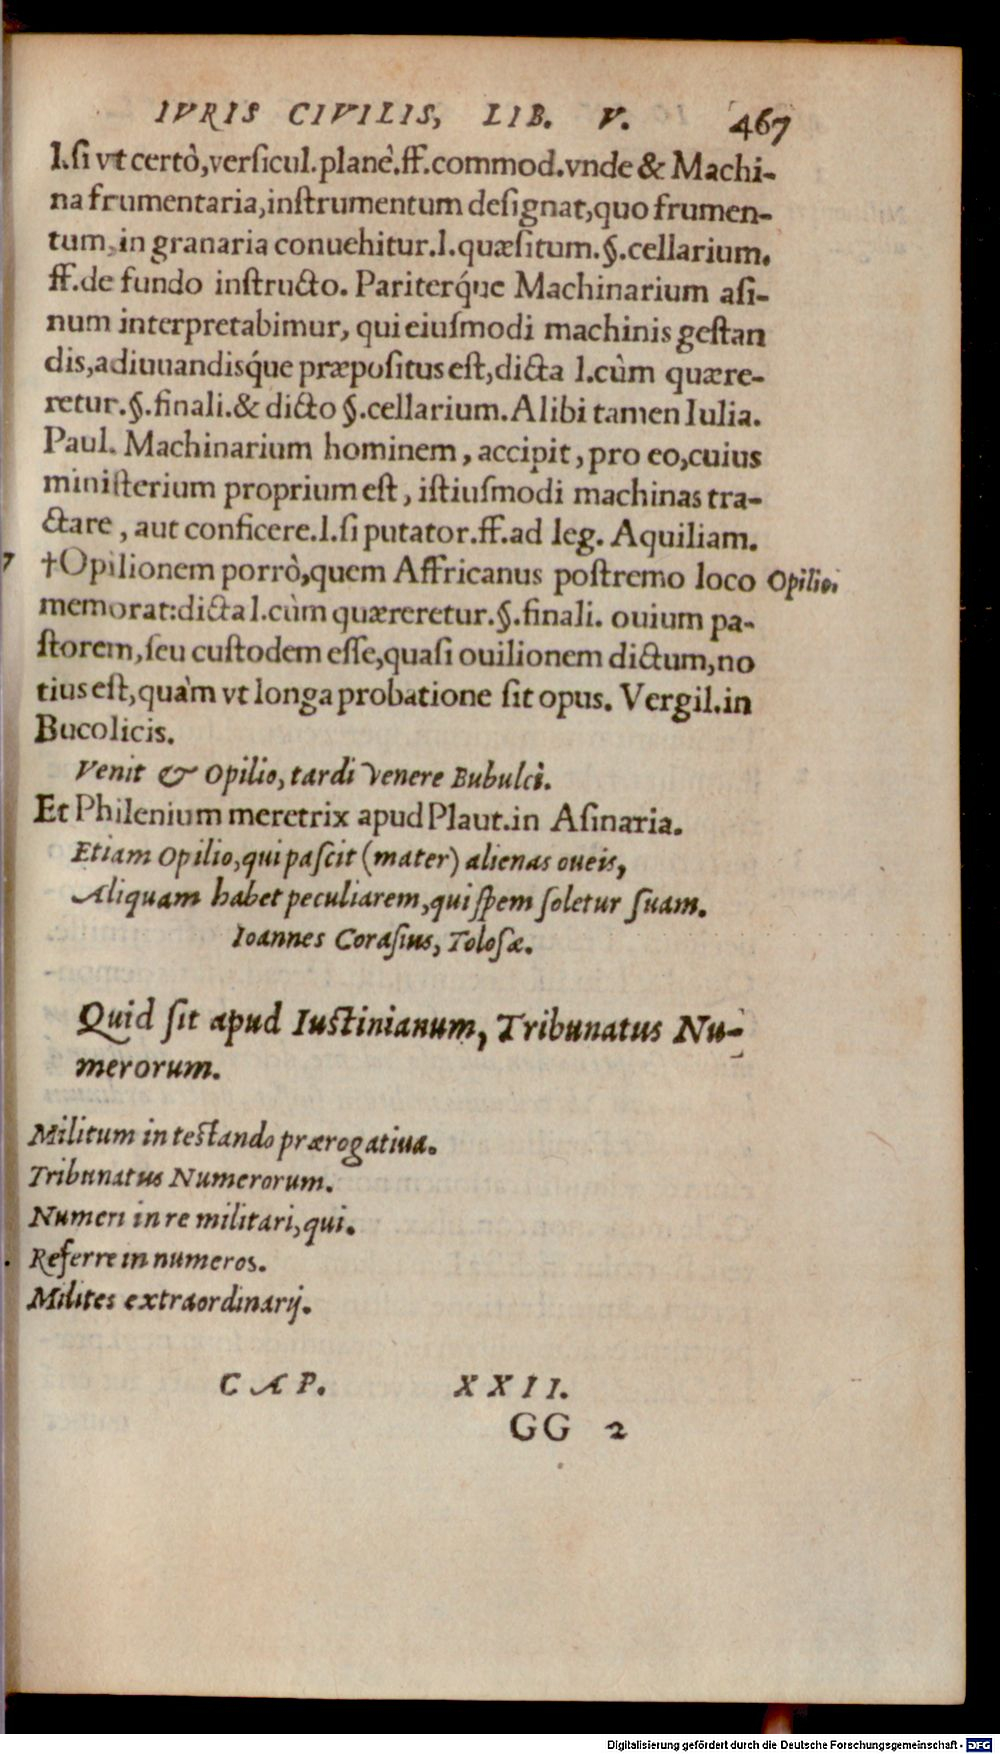 IVRIS CIVILIS, LIB. V. 467
l.ſi vt certò,verſicul.planè.ff.commod.vnde & Machi-
na frumentaria,inſtrumentum deſignat,quo frumen-
tum,in granaria conuehitur.l.quæſitum.§.cellarium.
ff.de fundo inſtructo. Pariterq́ue Machinarium aſi-
num interpretabimur, qui eiuſmodi machinis geſtan
dis,adiuuandisq́ue præpoſitus eſt,dicta l.cùm quære-
retur.§.finali.& dicto §.cellarium.Alibi tamen Iulia.
Paul. Machinarium hominem, accipit, pro eo,cuius
miniſterium proprium eſt, iſtiuſmodi machinas tra-
ctare, aut conficere.l.ſi putator.ff.ad leg. Aquiliam.
7 †Opilionem porrò,quem Affricanus poſtremo loco Opilio.
memorat:dicta l.cùm quæreretur.§.finali. ouium pa-
ſtorem,ſeu cuſtodem eſſe,quaſi ouilionem dictum,no
tius eſt,quàm vt longa probatione ſit opus. Vergil.in
Bucolicis.
Venit & Opilio, tardi venere Bubulci.
Et Philenium meretrix apud Plaut.in Aſinaria.
Etiam Opilio,qui paſcit (mater) alienas oueis,
Aliquam habet peculiarem,qui ſpem ſoletur ſuam.
Ioannes Coraſius, Toloſæ.
Quid ſit apud Iuſtinianum, Tribunatus Nu-
merorum.
Militum in teſtando prærogatiua.
Tribunatus Numerorum.
Numeri in re militari,qui.
Referre in numeros.
Milites extraordinarij.
CAP. XXII.
GG 2
Digitalisierung gefördert durch die Deutsche Forschungsgemeinschaft - DFG